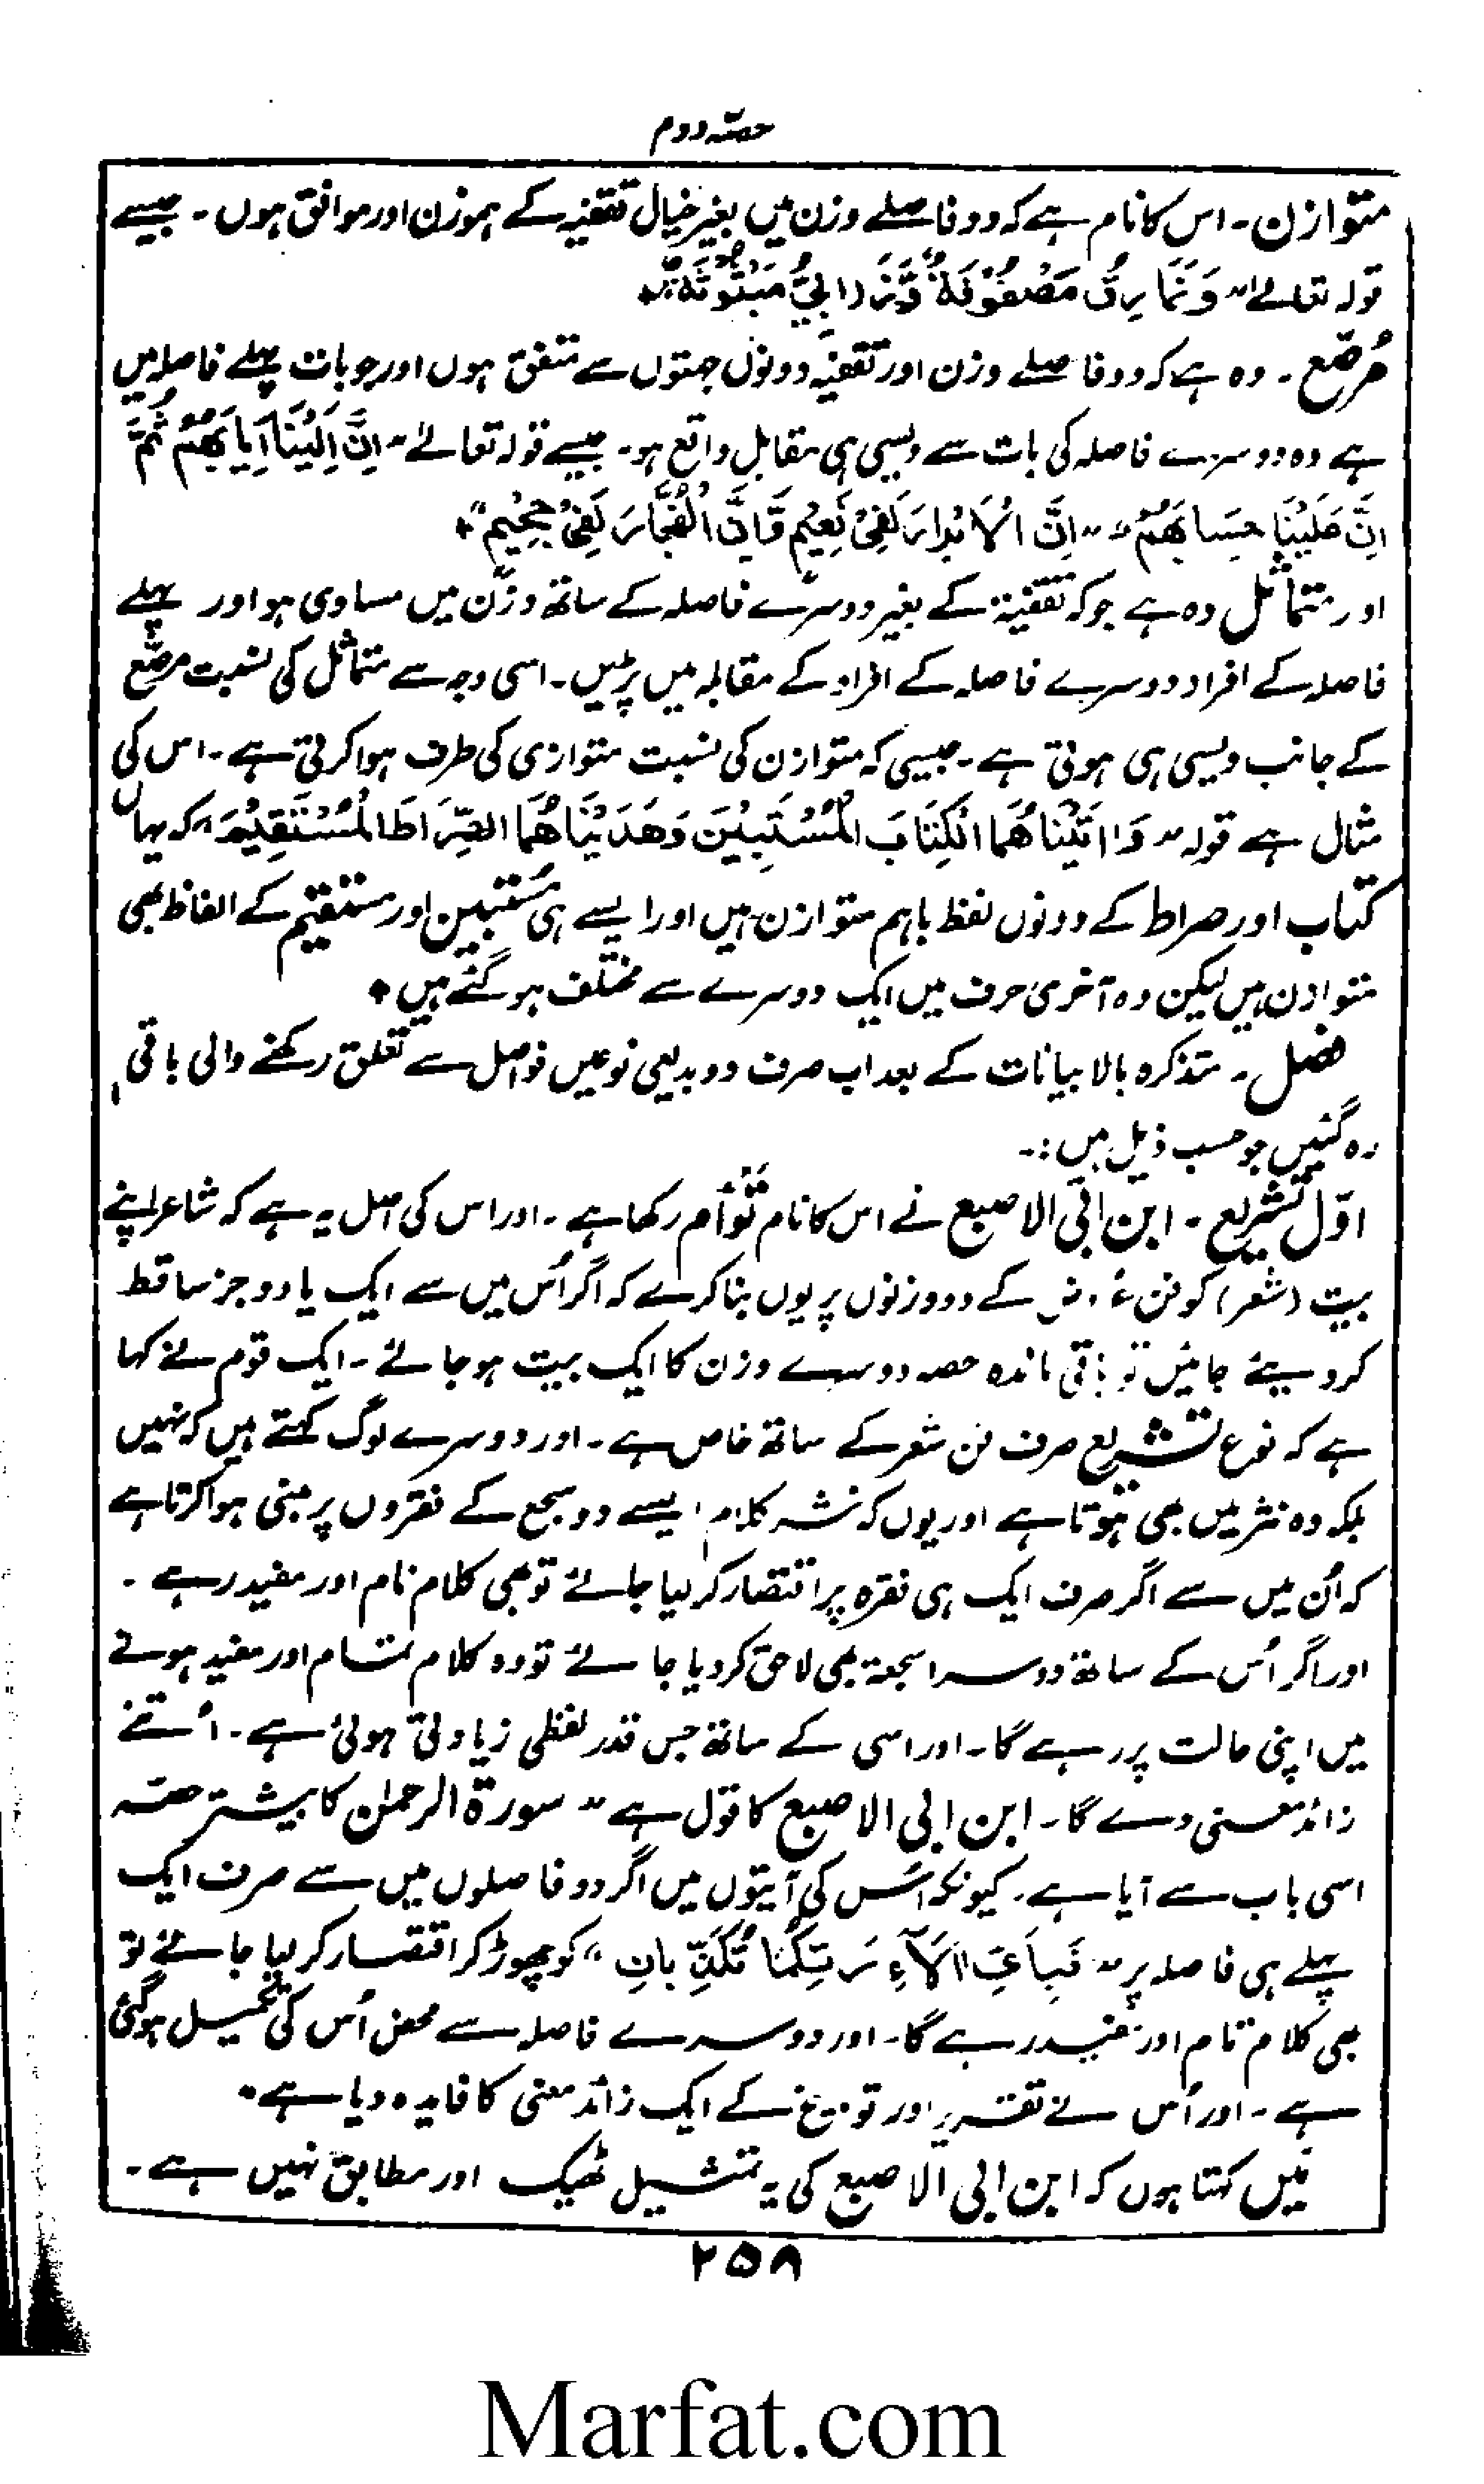 حصّہ دوم
متوازن۔ اس کا نام ہے کہ دو فاصلے وزن میں بغیر خیال تقفیہ کے ہموزن اور موافق ہوں۔ جیسے
قولہ تعالےٰ "وَنَمَارِقُ مَصْفُوْفَةٌ وَّزَرَابِيُّ مَبْثُوْثَةٌ"۔
مُرصّع۔ وہ ہے کہ دو فاصلے وزن اور تقفیہ دونوں جہتوں سے متفق ہوں اور جو بات پہلے فاصلہ میں
ہے وہ دوسرے فاصلہ کی بات سے ویسی ہی مقابل واقع ہو۔ جیسے قولہ تعالےٰ "اِنَّ اِلَيْنَا اِيَابَهُمْ ثُمَّ
اِنَّ عَلَيْنَا حِسَابَهُمْ" "اِنَّ الْاَبْرَارَ لَفِيْ نَعِيْمٍ وَّاِنَّ الْفُجَّارَ لَفِيْ جَحِيْمٍ"۔
اور متماثل وہ ہے جو کہ تقفیۃ کے بغیر دوسرے فاصلہ کے ساتھ وزن میں مساوی ہو اور پہلے
فاصلہ کے افراد دوسرے فاصلہ کے افراد کے مقابلہ میں پڑیں۔ اسی وجہ سے متماثل کی نسبت مرصّع
کے جانب ویسی ہی ہوتی ہے۔ جیسی کہ متوازن کی نسبت متوازی کی طرف ہوا کرتی ہے۔ اس کی
مثال ہے قولہ "وَاٰتَيْنَاهُمَا الْكِتَابَ الْمُسْتَبِيْنَ وَهَدَيْنَاهُمَا الصِّرَاطَ الْمُسْتَقِيْمَ" کہ یہاں
کتاب اور صراط کے دونوں لفظ باہم متوازن ہیں اور ایسے ہی مُستبین اور مستقیم کے الفاظ بھی
متوازن ہیں لیکن وہ آخری حرف میں ایک دوسرے سے مختلف ہو گئے ہیں۔
فصل۔ متذکرہ بالا بیانات کے بعد اب صرف دو بدیعی نوعیں فواصل سے تعلق رکھنے والی باقی
رہ گئیں جو حسب ذیل ہیں:۔
اوّل تشریع۔ ابن ابی الاصبع نے اس کا نام تَوْأم رکھا ہے۔ اور اس کی اصل یہ ہے کہ شاعر اپنے
بیت (شعر) کو فن عروض کے دو وزنوں پر یوں بنا کرے کہ اگر اُس میں سے ایک یا دو جز ساقط
کر دیئے جائیں تو باقی ماندہ حصہ دوسرے وزن کا ایک بیت ہو جائے۔ ایک قوم نے کہا
ہے کہ نوع تشریع صرف فن شعر کے ساتھ خاص ہے۔ اور دوسرے لوگ کہتے ہیں کہ نہیں
بلکہ وہ نثر میں بھی ہوتا ہے اور یوں کہ نثر کلام ایسے دو سجع کے فقروں پر مبنی ہوا کرتا ہے
کہ اُن میں سے اگر صرف ایک ہی فقرہ پر اقتصار کر لیا جائے تو بھی کلام تام اور مفید رہے۔
اور اگر اُس کے ساتھ دوسرا سجعۃ بھی لاحق کر دیا جائے تو وہ کلام تمام اور مفید ہونے
میں اپنی حالت پر رہے گا۔ اور اسی کے ساتھ جس قدر لفظی زیادتی ہوئی ہے۔ اُتنے
زائد معنی دے گا۔ ابن ابی الاصبع کا قول ہے "سورۃ الرحمٰن کا بیشتر حصّہ
اسی باب سے آیا ہے۔ کیونکہ اُس کی آیتوں میں اگر دو فاصلوں میں سے صرف ایک
پہلے ہی فاصلہ پر "فَبِاَيِّ اٰلَآءِ رَبِّكُمَا تُكَذِّبَانِ" کو چھوڑ کر اقتصار کر لیا جائے تو
بھی کلام تام اور مفید رہے گا۔ اور دوسرے فاصلہ سے محض اُس کی تکمیل ہو گئی
ہے۔ اور اُس نے تقریر اور توبیخ کے ایک زائد معنی کا فایدہ دیا ہے۔
میں کہتا ہوں کہ ابن ابی الاصبع کی یہ تمثیل ٹھیک اور مطابق نہیں ہے۔
۲۵۸
Marfat.com